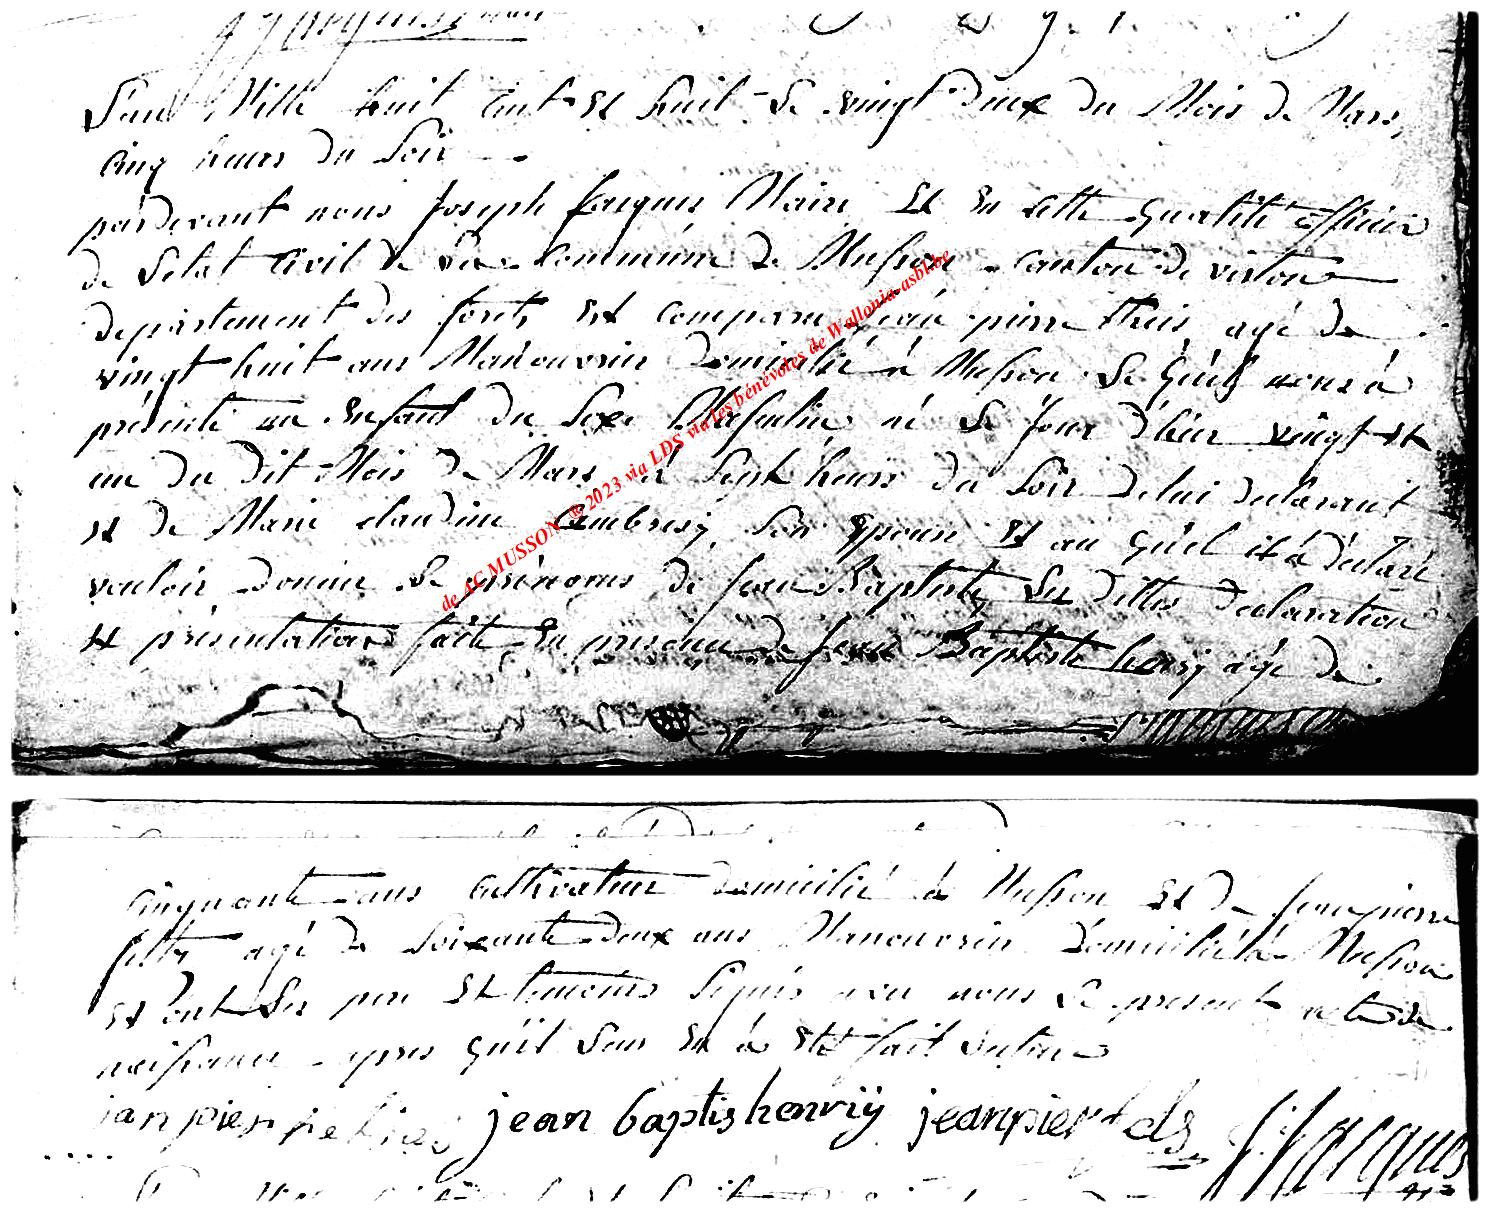 L'an Mille huit Cent Et huit Le vingt deux du Mois de Mars,
Cinq heures du Soir
pardevant nous Joseph Jacques Maire Et En cette Qualité officier
de L'etat Civil de La Commune de Musson Canton de virton
departement des forets Est comparu jean pierre agé de
vingt huit ans Manouvrier domicilié à Musson Le Quel nous à
présenté un Enfant du Sexe Masculin né Le Jour d'hier vingt Et
un du dit Mois de Mars à Sept heures du Soir de lui declarant
Et de Marie claudine Son Epouse Et au Quel il à déclaré
vouloir donner Le prénoms de Jean Baptiste Les dittes declaration
Et présentation faite En presence de Jean Baptiste henrij agé de
de AC MUSSON © 2023 via LDS via les bénévoles de Wallonia-asbl.be
Cinquante ans Cultivateur domicilié à Musson Et de Jean pierre
agé de Soixante deux ans Manouvrier domicilié à Musson
Et ont Les pere Et temoins Signés avec nous Le present acte de
naissance apres Qu'il Leur En à Eté fait Lecture
jan pier jean baptis henrÿ jeanpier J. Jacques